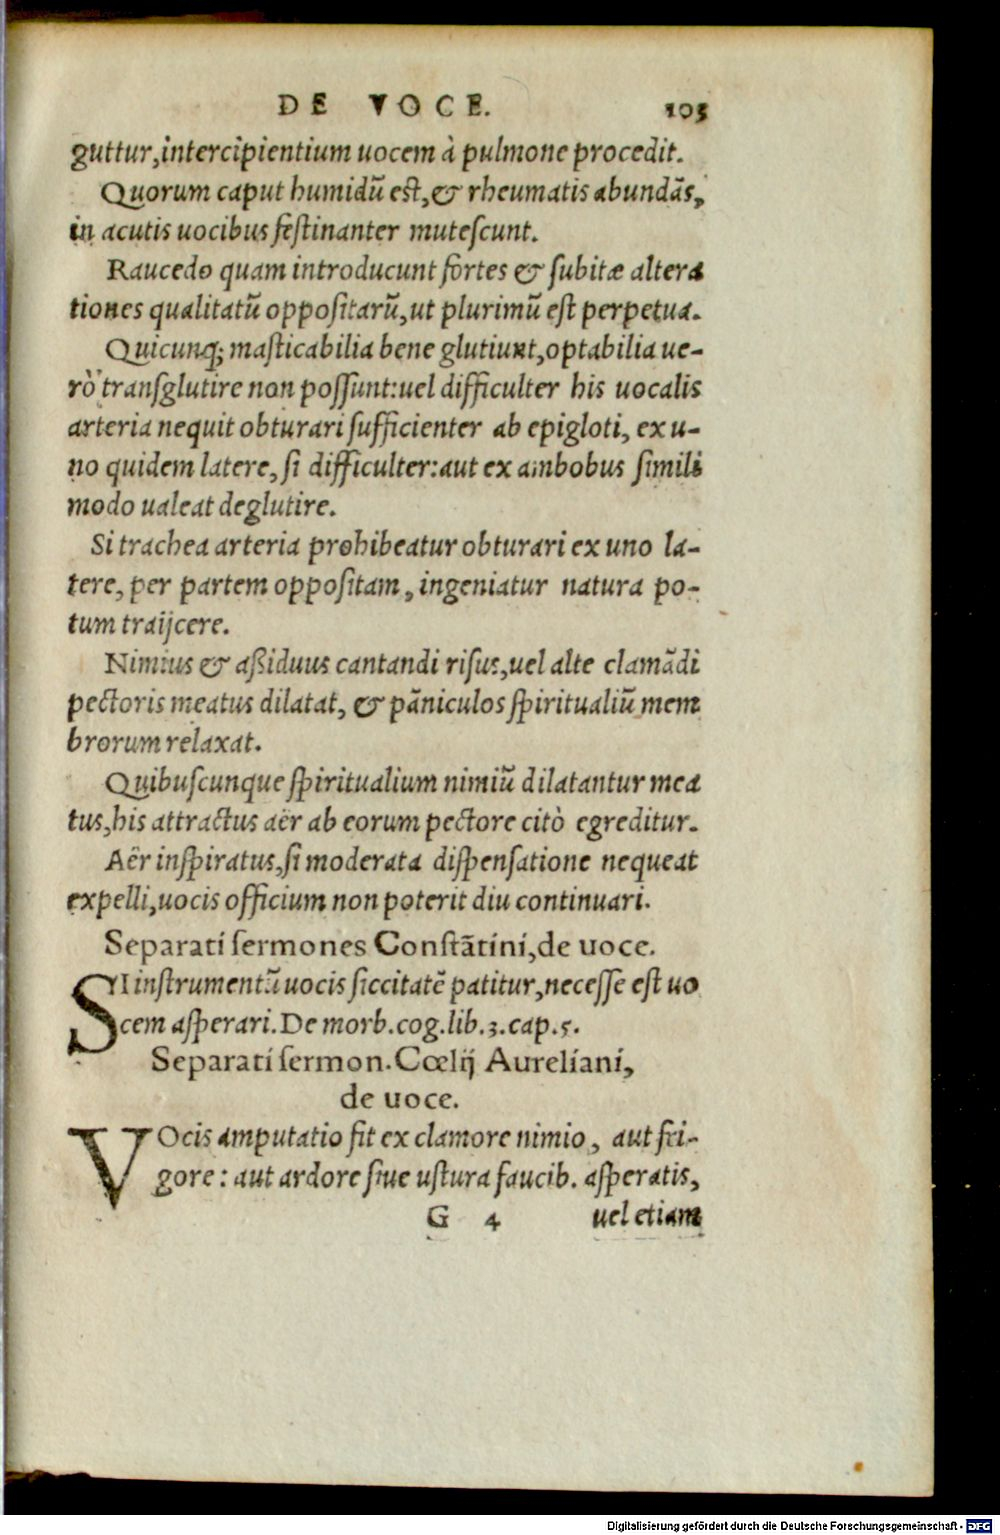 DE VOCE. 105
guttur,intercipientium uocem à pulmone procedit.
Quorum caput humidū est,& rheumatis abundās,
in acutis uocibus festinanter mutescunt.
Raucedo quam introducunt fortes & subitæ altera
tiones qualitatū oppositarū,ut plurimū est perpetua.
Quicunq; masticabilia bene glutiunt,optabilia ue-
rò transglutire non possunt:uel difficulter his uocalis
arteria nequit obturari sufficienter ab epigloti, ex u-
no quidem latere, si difficulter:aut ex ambobus simili
modo ualeat deglutire.
Si trachea arteria prohibeatur obturari ex uno la-
tere, per partem oppositam, ingeniatur natura po-
tum traijcere.
Nimius & aßiduus cantandi risus,uel alte clamādi
pectoris meatus dilatat, & pāniculos spiritualiū mem
brorum relaxat.
Quibuscunque spiritualium nimiū dilatantur mea
tus,his attractus aër ab eorum pectore citò egreditur.
Aër inspiratus,si moderata dispensatione nequeat
expelli,uocis officium non poterit diu continuari.
Separati sermones Constātini,de uoce.
SI instrumentū uocis siccitatē patitur,necesse est uo
cem asperari.De morb.cog.lib.3.cap.5.
Separati sermon.Cœlij Aureliani,
de uoce.
VOcis amputatio fit ex clamore nimio, aut fri-
gore: aut ardore siue ustura faucib. asperatis,
G 4 uel etiam
Digitalisierung gefördert durch die Deutsche Forschungsgemeinschaft - DFG